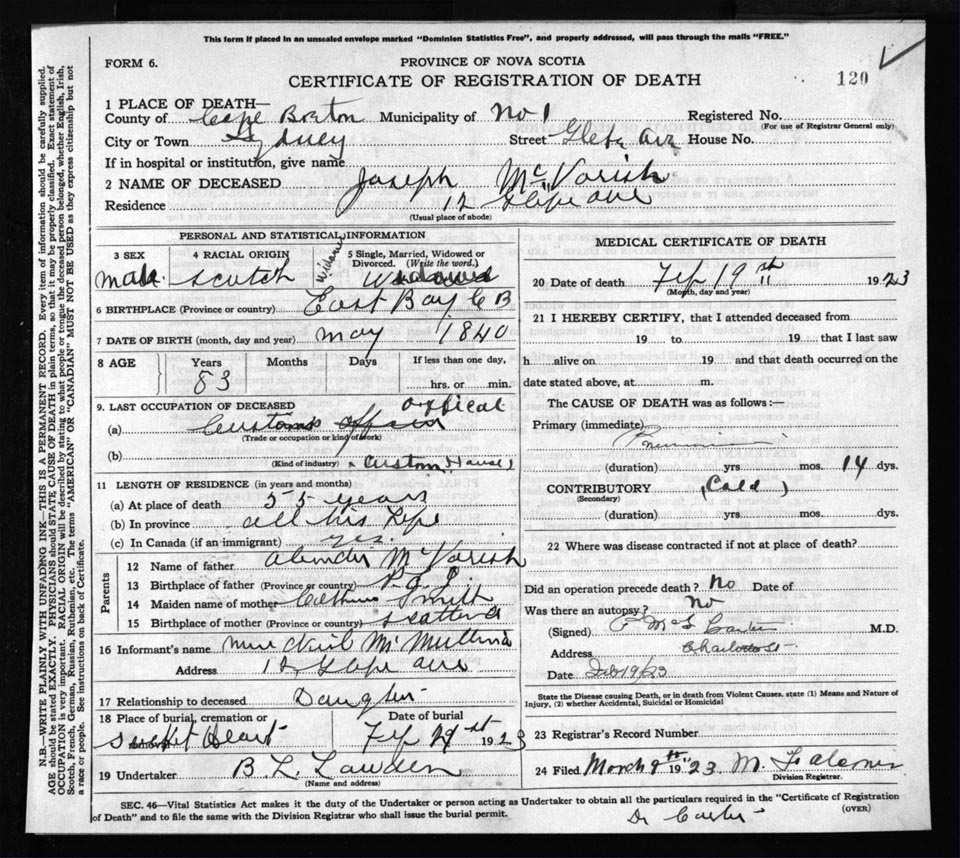 This form if placed in an unsealed envelope marked "Dominion Statistics Free", and properly addressed, will pass through the mails "FREE."
FORM 6.
PROVINCE OF NOVA SCOTIA
CERTIFICATE OF REGISTRATION OF DEATH
120
N.B.—WRITE PLAINLY WITH UNFADING INK—THIS IS A PERMANENT RECORD. Every item of information should be carefully supplied.
AGE should be stated EXACTLY. PHYSICIANS should STATE CAUSE OF DEATH in plain terms, so that it may be properly classified. Exact statement of
OCCUPATION is very important. RACIAL ORIGIN will be described by stating to what people or tongue the deceased person belonged, whether English, Irish,
Scotch, French, German, Russian, Ruthenian, etc. The terms "AMERICAN" OR "CANADIAN" MUST NOT BE USED as they express citizenship but not
a race or people. See instructions on back of Certificate.
1 PLACE OF DEATH—
County of Cape Breton Municipality of No 1 Registered No.
(For use of Registrar General only)
City or Town Sydney Street Ave House No.
If in hospital or institution, give name
2 NAME OF DECEASED Joseph McVarish
Residence 12 ave
(Usual place of abode)
PERSONAL AND STATISTICAL INFORMATION
3 SEX 4 RACIAL ORIGIN 5 Single, Married, Widowed or Divorced. (Write the word.)
Male Scotch Widowed
6 BIRTHPLACE (Province or country) East Bay C B
7 DATE OF BIRTH (month, day and year) May 1840
8 AGE Years Months Days If less than one day,
83 hrs. or min.
9. LAST OCCUPATION OF DECEASED
(a) Customs
(Trade or occupation or kind of work)
(b)
(Kind of industry) Custom House
11 LENGTH OF RESIDENCE (in years and months)
(a) At place of death 55 years
(b) In province all his Life
(c) In Canada (if an immigrant) yes.
Parents
12 Name of father McVarish
13 Birthplace of father (Province or country) P.E.I
14 Maiden name of mother Smith
15 Birthplace of mother (Province or country)
16 Informant's name Neil
Address 12 ave
17 Relationship to deceased Daughter
18 Place of burial, cremation or Date of burial
Heart Feb 19 23
19 Undertaker B. L.
(Name and address)
MEDICAL CERTIFICATE OF DEATH
20 Date of death Feb 19th 1923
(Month, day and year)
21 I HEREBY CERTIFY, that I attended deceased from
19 to 19 that I last saw
h alive on 19 and that death occurred on the
date stated above, at m.
The CAUSE OF DEATH was as follows:—
Primary (immediate)
Pneumonia
(duration) yrs mos. 14 dys.
CONTRIBUTORY (Cold)
(Secondary)
(duration) yrs. mos. dys.
22 Where was disease contracted if not at place of death?
Did an operation precede death? No Date of
Was there an autopsy? No
(Signed) M.D.
Address Charlotte St
Date Feb 19/23
State the Disease causing Death, or in death from Violent Causes, state (1) Means and Nature of
Injury, (2) whether Accidental, Suicidal or Homicidal
23 Registrar's Record Number
24 Filed March 9th 1923 M.
Division Registrar.
SEC. 46—Vital Statistics Act makes it the duty of the Undertaker or person acting as Undertaker to obtain all the particulars required in the "Certificate of Registration
of Death" and to file the same with the Division Registrar who shall issue the burial permit.
(OVER)
Dr